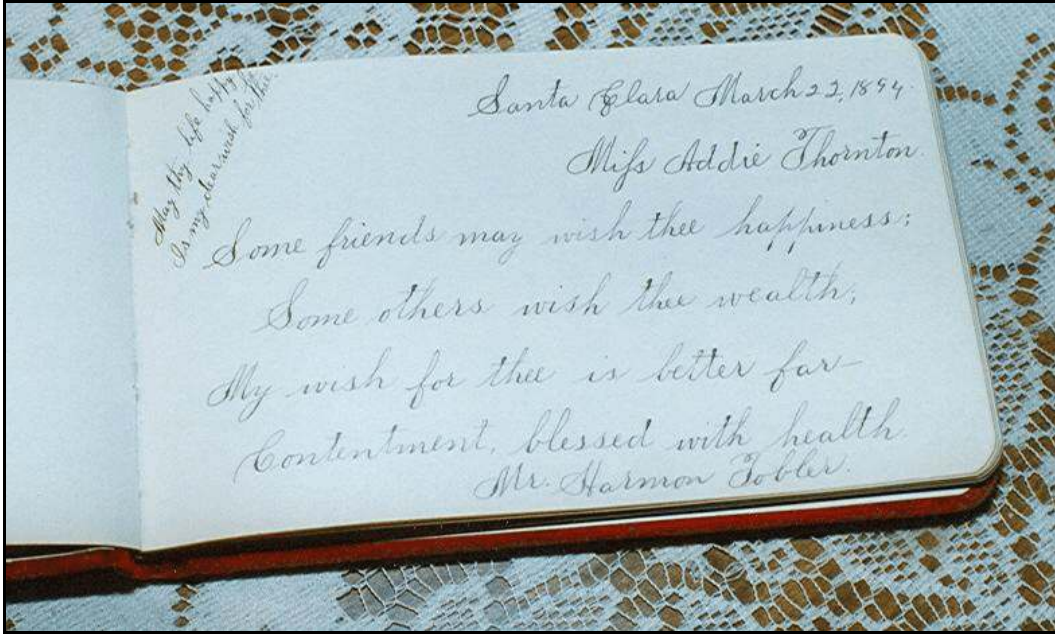 May thy life happy
Is my dear wish for thee.
Santa Clara March 22, 1894.
Miss Addie Thornton.
Some friends may wish thee happiness;
Some others wish thee wealth;
My wish for thee is better far—
Contentment, blessed with health.
Mr. Harmon Tobler.